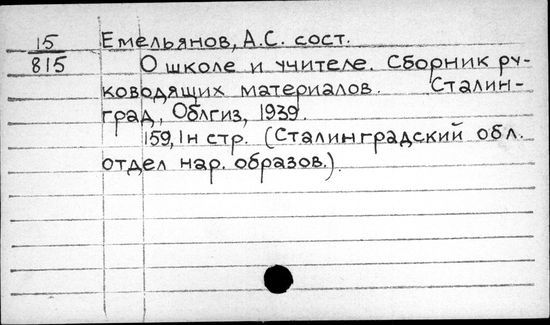 15 Емельянов, А.С. сост.
815 О школе и учителе. Сборник ру-
ководящих материалов. Сталин-
град, Облгиз, 1939.
159,1н стр. (Сталинградский обл.
отдел нар. образов.).